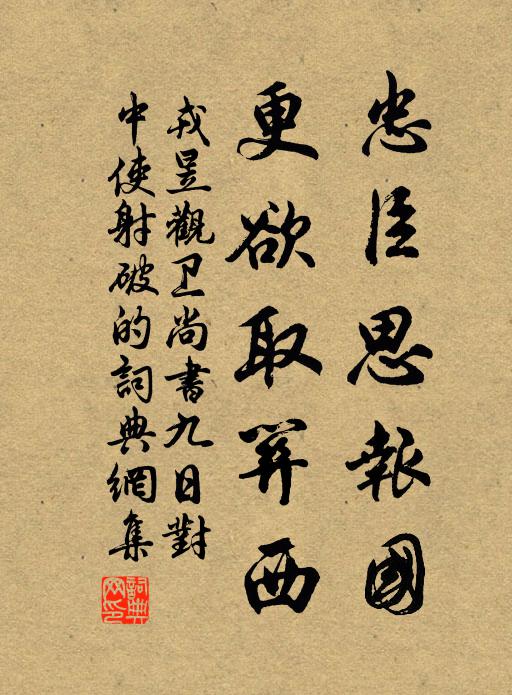 忠臣思報國
更欲取關西
戎昱觀卫尚書九日對
中使射破的詞典網集
詞典网印